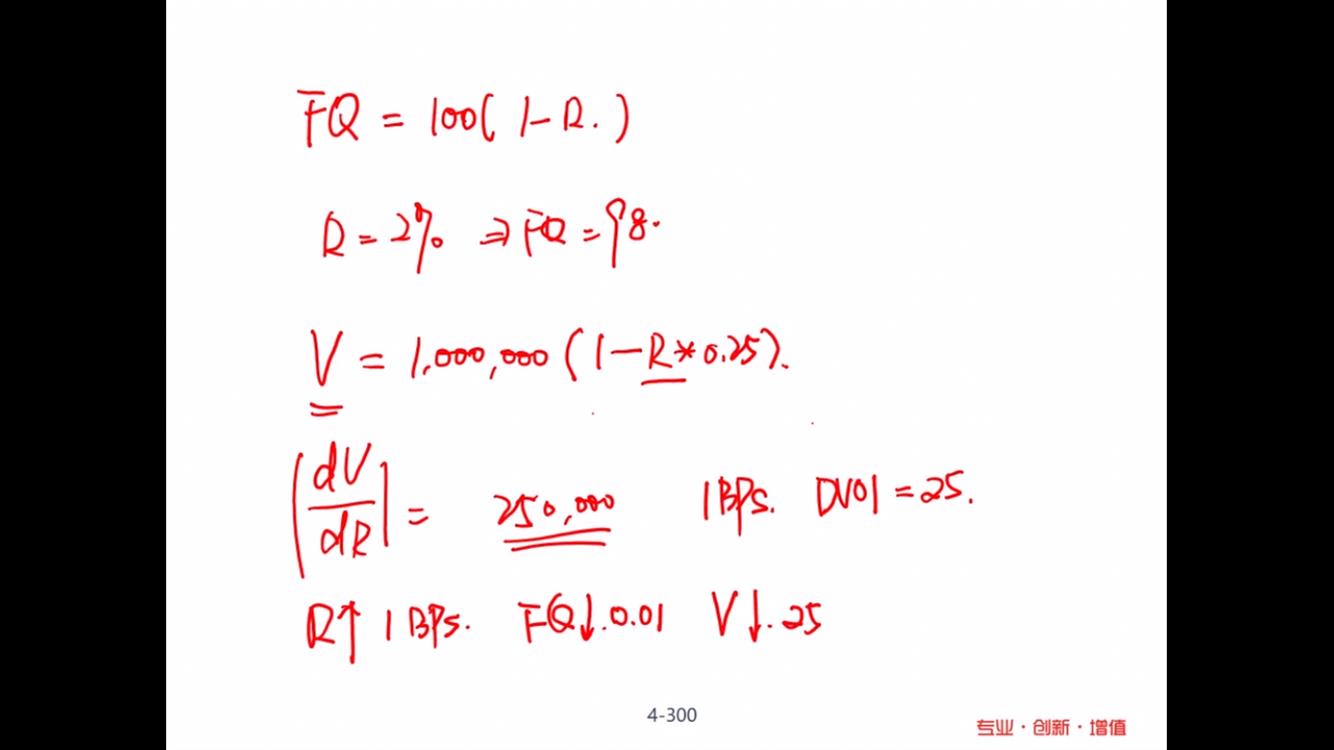 FQ = 100(1-R.)
R = 2% ⇒ FQ = 98.
V = 1,000,000(1-R*0.25).
|dV/dR| = 250,000 1BPs. DV01 = 25.
R↑ 1BPs. FQ↓.0.01 V↓.25
4-300
专业·创新·增值